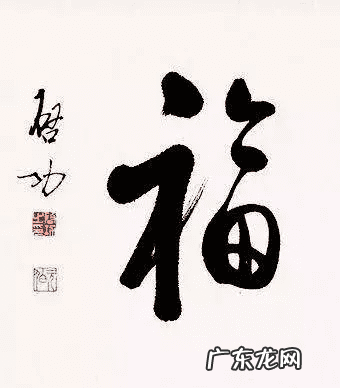 福
启功
广东龙网